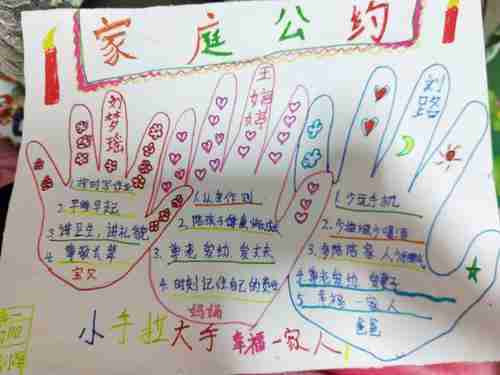 家庭公约
刘梦瑶
1.按时写作业
2.早睡早起
3.讲卫生，讲礼貌
4.尊敬长辈
宝贝
王婷婷
1.以身作则
2.陪孩子
3.尊老爱幼、爱丈夫
4.时刻记住自己的责任
妈妈
刘路
1.少玩手机
2.少抽烟少喝酒
3.多陪陪家人
4.尊老爱幼，爱妻子
5.幸福一家人
爸爸
小手拉大手 幸福一家人